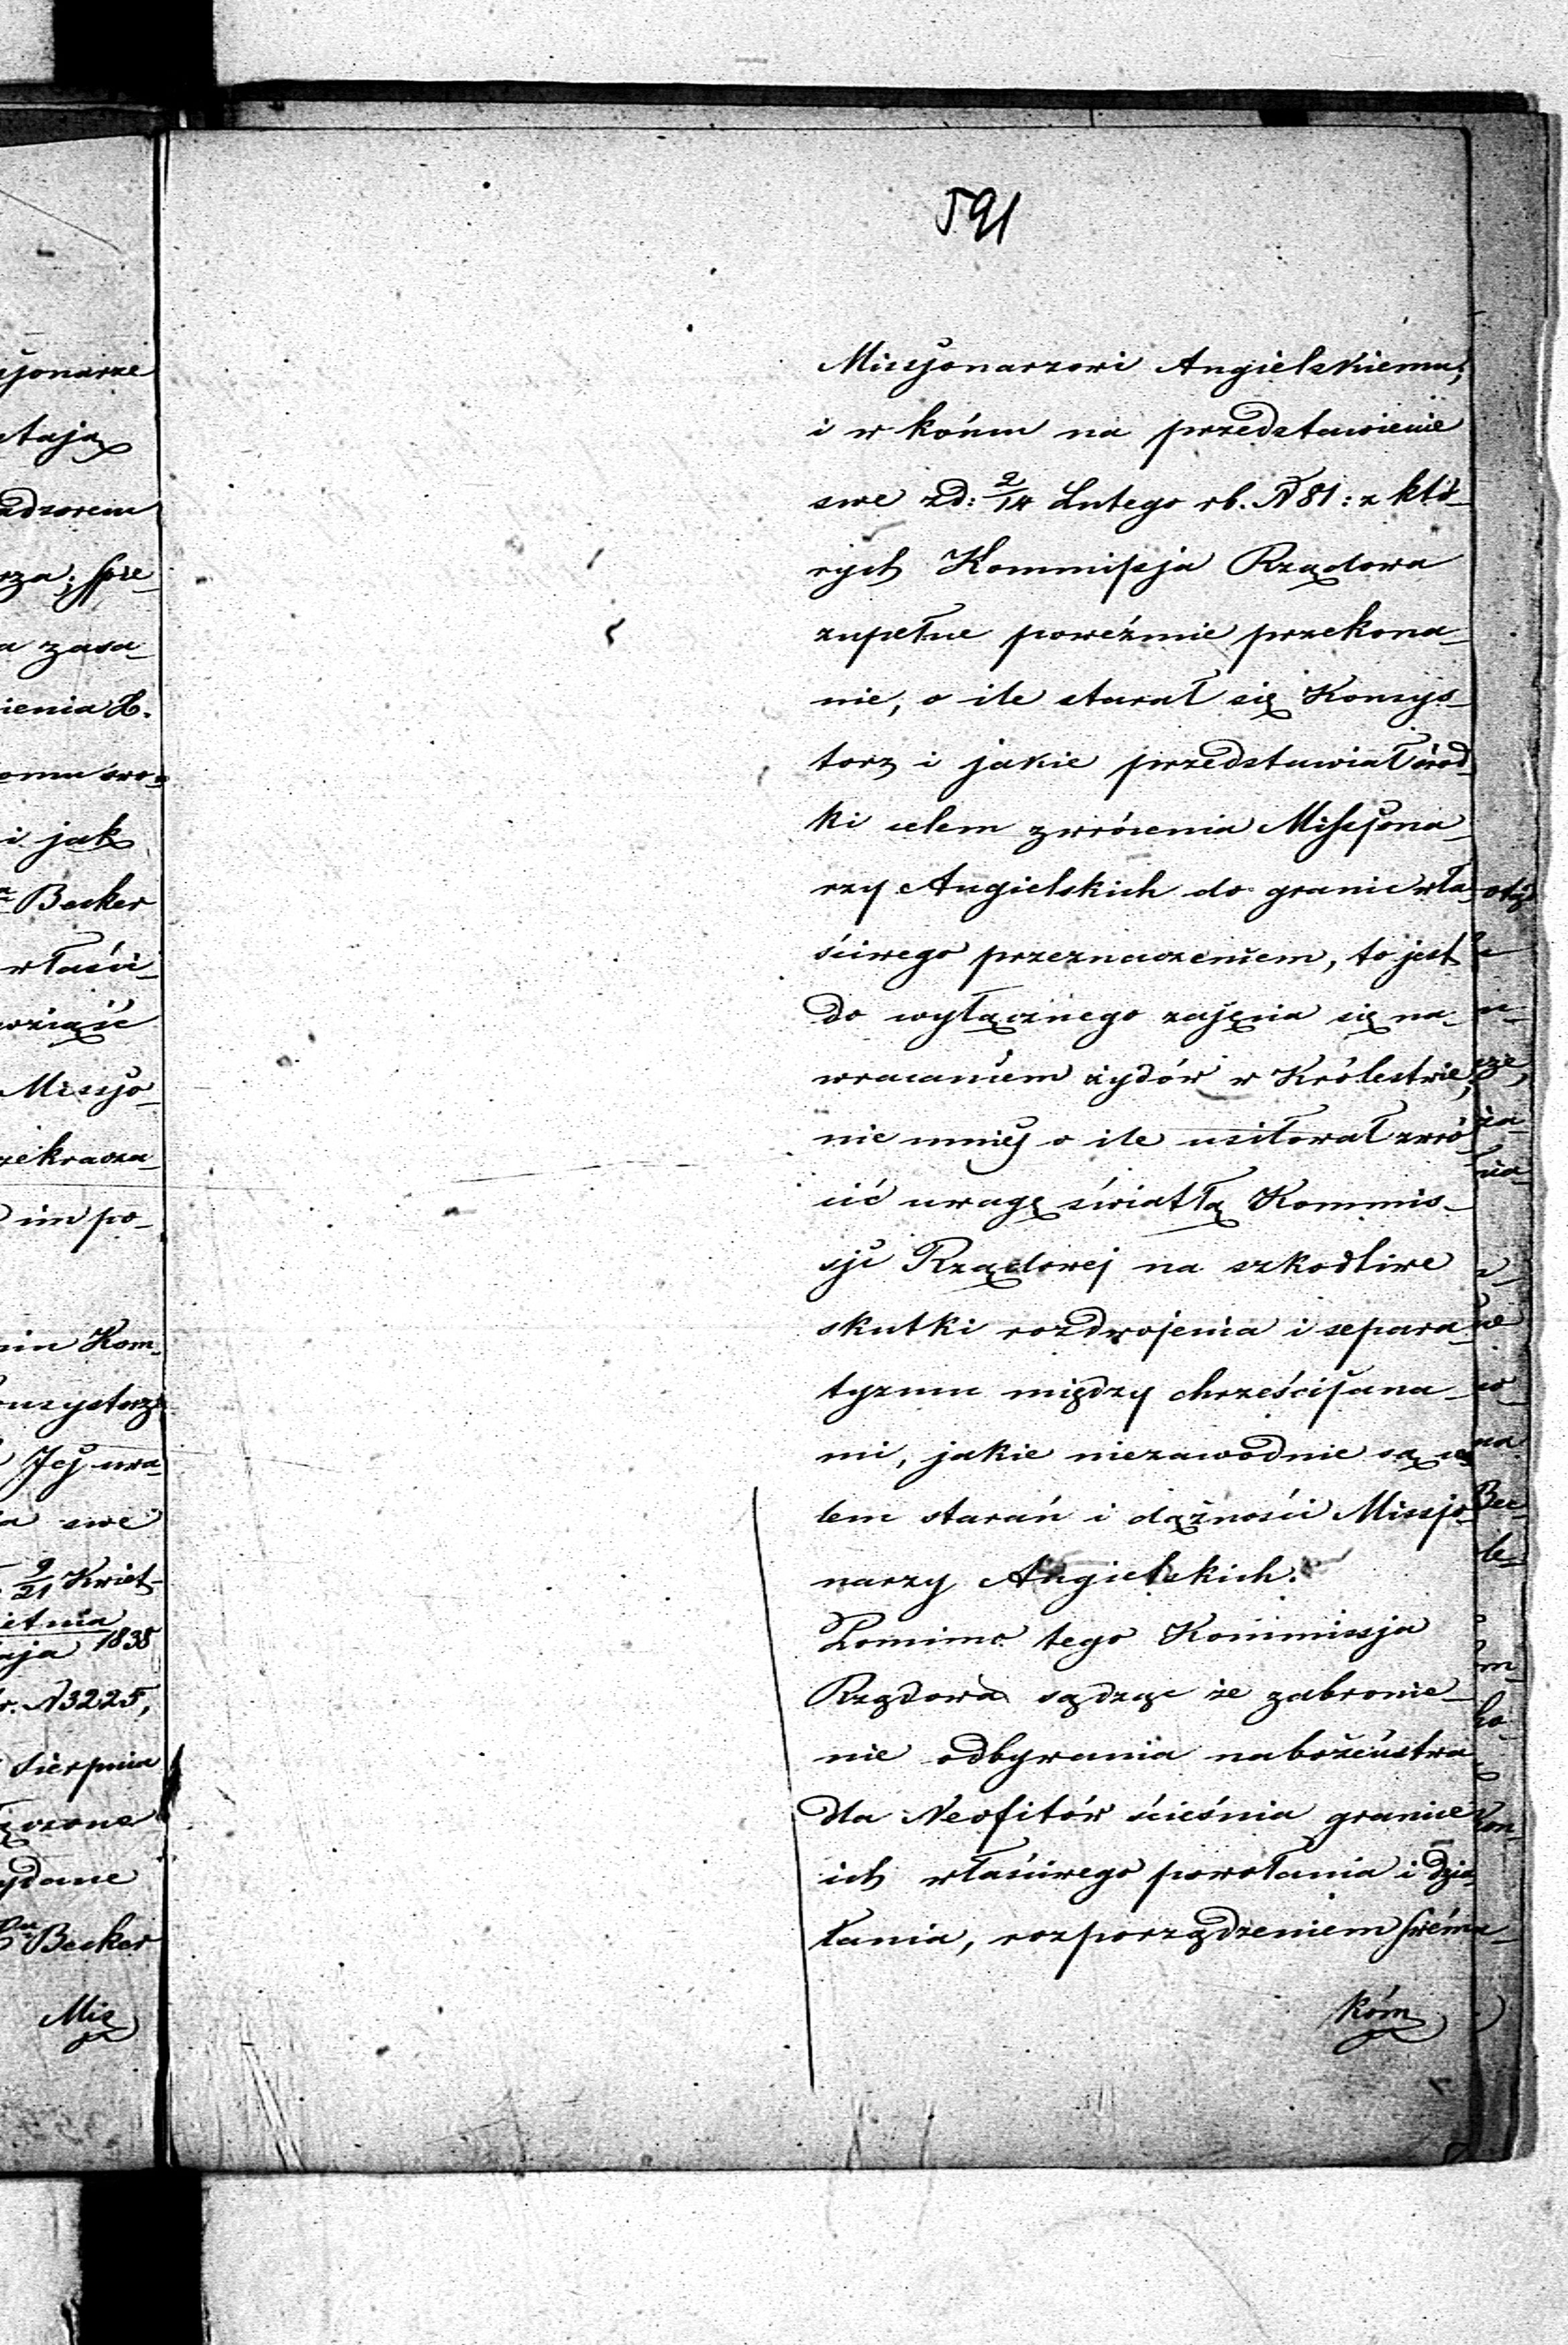 591
Missjonarzowi Angielskiemu;
i w końcu na przedstawienie
swe zd: 2/14 Lutego rb. N 81: z któ-
rych Kommissja Rządowa
zupełne poweźmie przekona-
nie, o ile starał się Konsys-
torz i jakie przedstawiał środ-
ki celem zwrócenia Missjona-
rzy Angielskich do granic wła-
ściwego przeznaczeniem, to jest
do wyłącznego zajęcia się na-
wracaniem żydów w Królestwie,
nie mniej o ile usiłował zwró-
cić uwagę światłą Kommis-
sji Rządowej na szkodliwe
skutki rozdwojenia i separa-
tyzmu między chrześcijana-
mi, jakie niezawodnie są ce-
lem starań i dążności Missjo-
narzy Angielskich.
Pomimo tego Kommissja
Rządowa sądząc że zabronie-
nie odbywania nabożeństwa
dla Neofitów ścieśnia granice
ich właściwego powołania i dzia-
łania, rozporządzeniem swém
kóm
sjonarze
stają
adzorem
rza; spe-
a zasa-
ienia X.
i jak
Becker
właści-
wziąść
Missjo-
zekracza-
im po-
Kom-
onsystorz
Jej uwa-
ia swe
9/21 Kwiet-
ietnia
aja 1838
r. N 3225,
Sierpnia
ączone
ydane
Becker
Mis